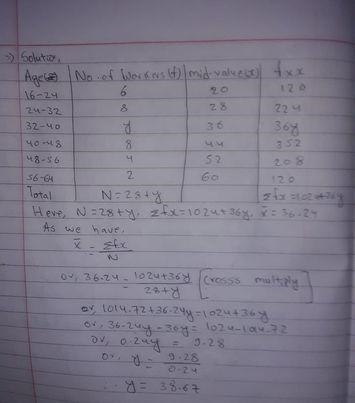 ⇒ Solution,
Age(x) No. of Workers (f) mid-value(x) f×x
16-24 6 20 120
24-32 8 28 224
32-40 y 36 36y
40-48 8 44 352
48-56 4 52 208
56-64 2 60 120
Total N=28+y Σfx=1024+36y
Here, N=28+y, Σfx=1024+36y, x̄ = 36.24
As we have,
x̄ = Σfx/N
or, 36.24 = 1024+36y/28+y [Crosss multiply]
or, 1014.72+36.24y=1024+36y
or, 36.24y-36y= 1024-1014.72
or, 0.24y = 9.28
or, y = 9.28/0.24
∴ y= 38.67